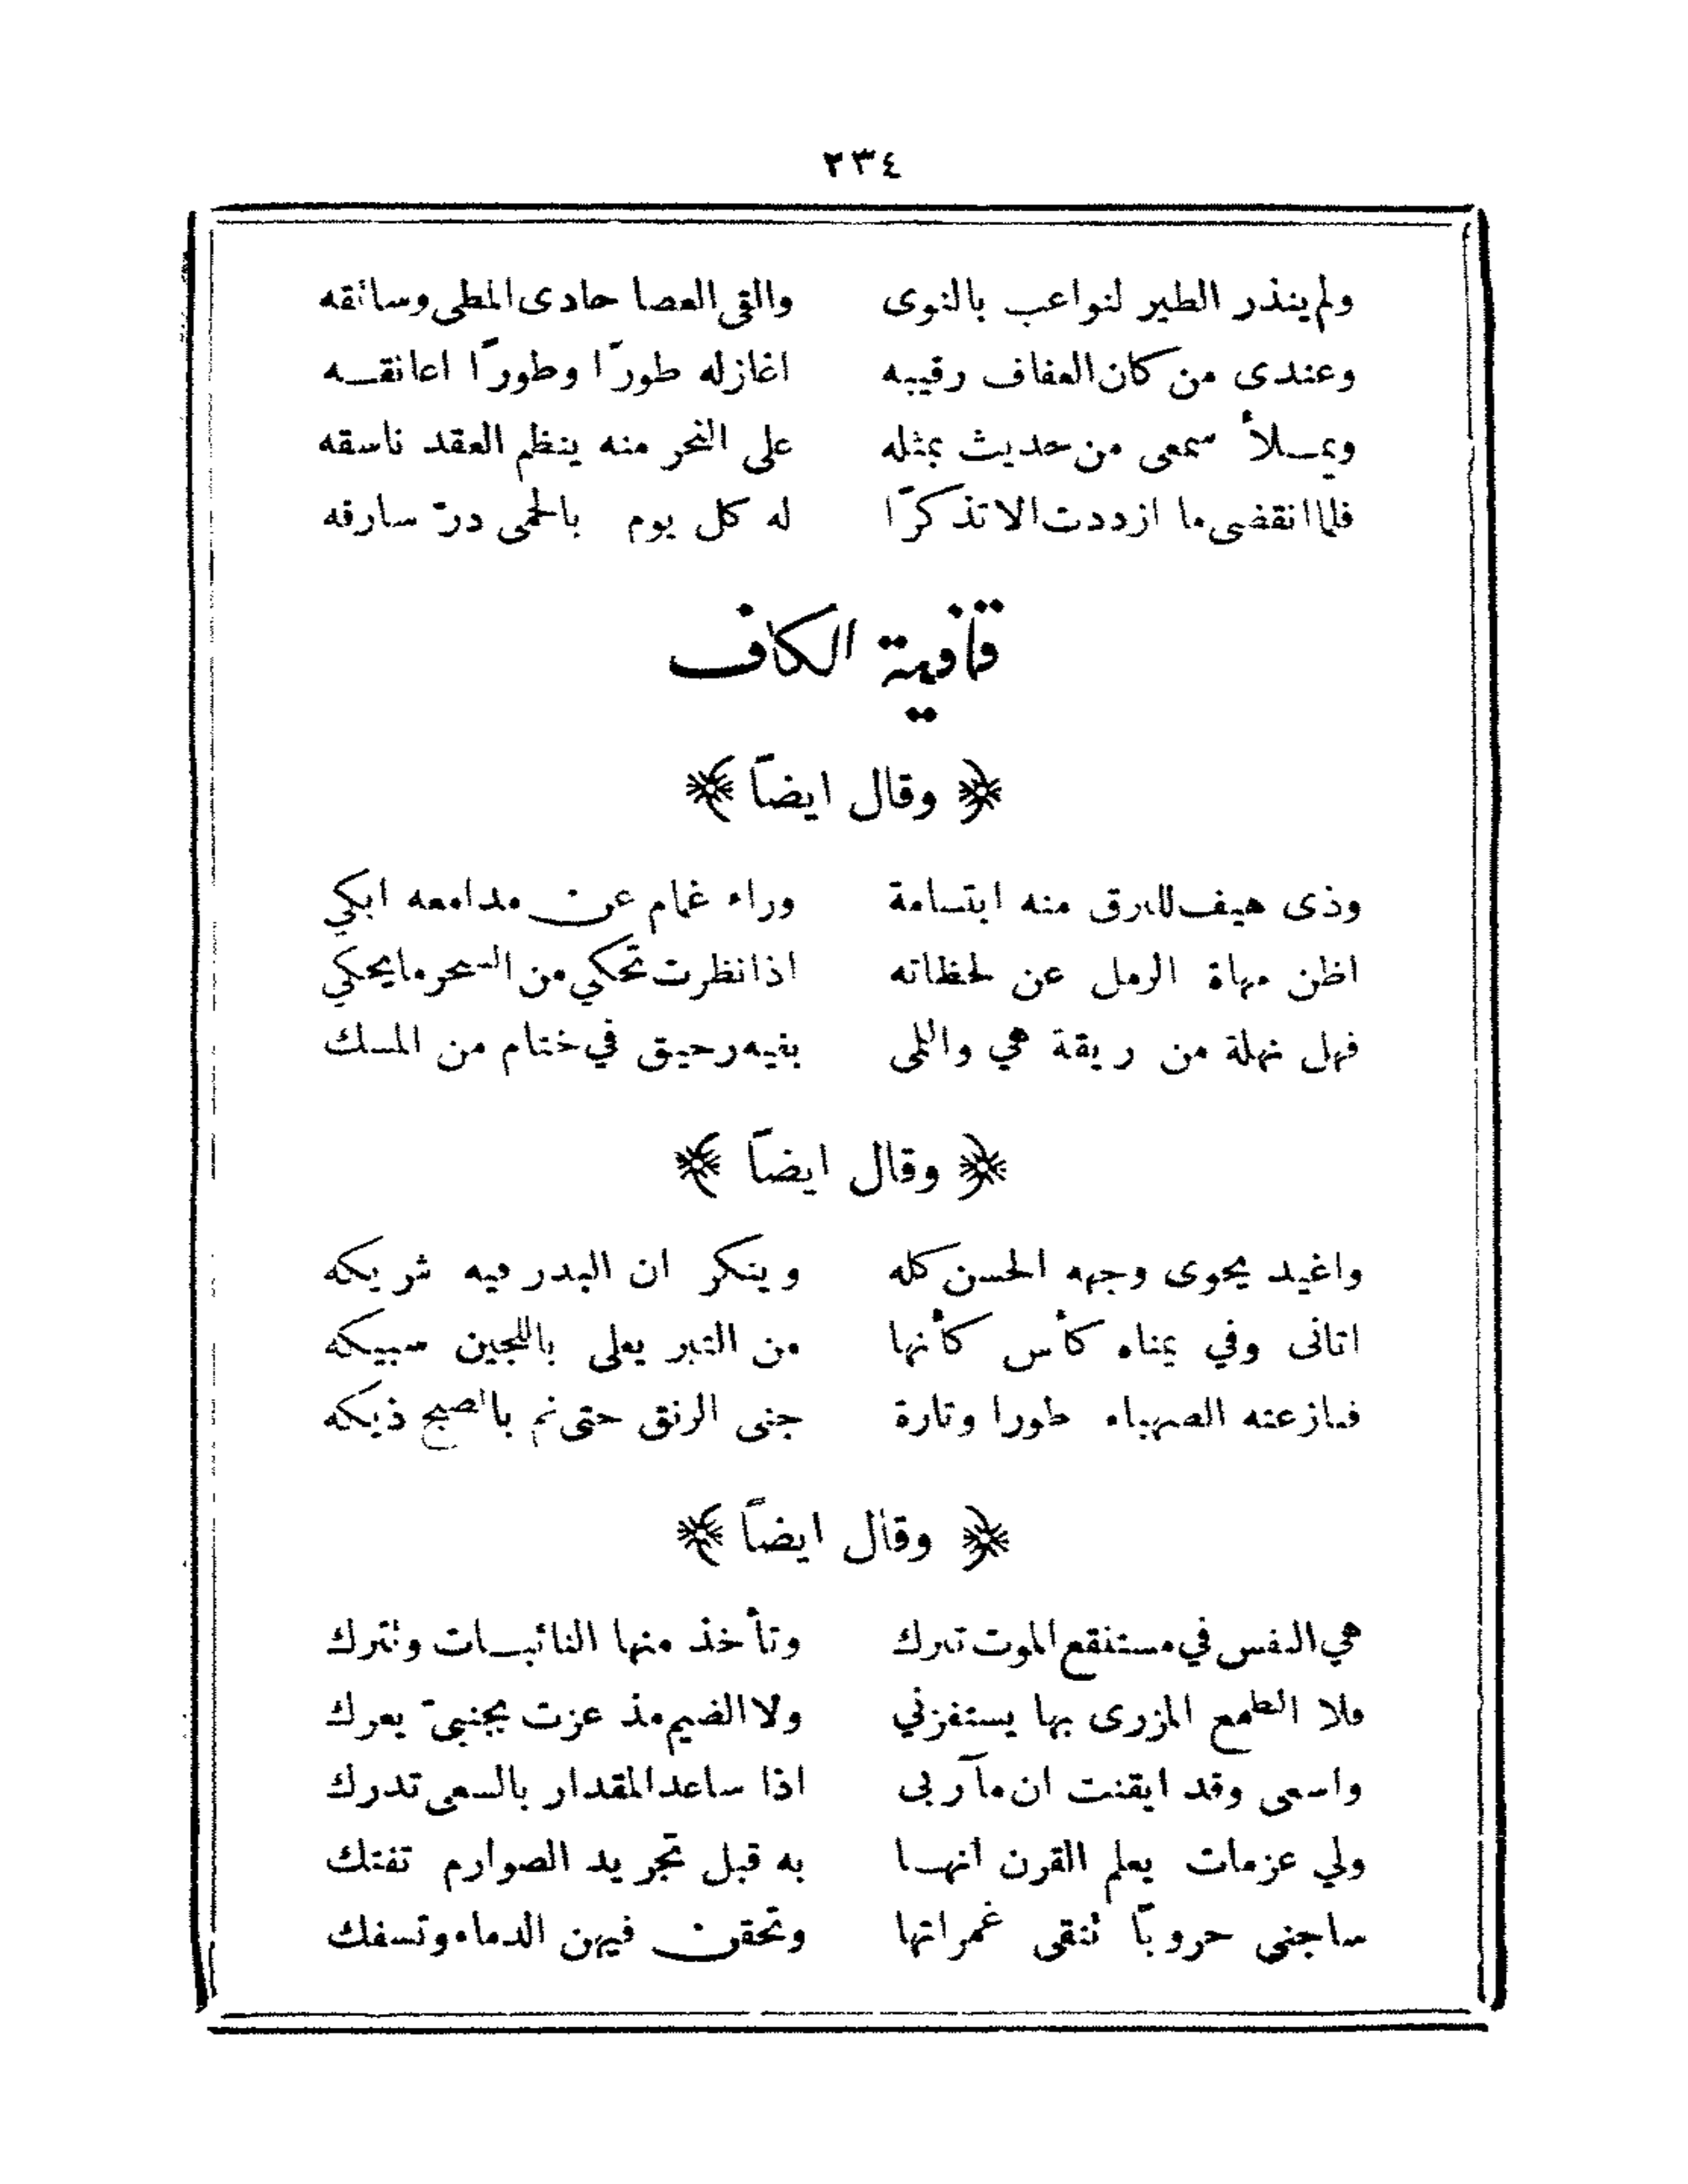 ٢٣٤
ولم ينذر الطير لنواعب بالنوى والقى العصا حادى المطى وسائقه
وعندى من كان العفاف رقيبه اغازله طورًا وطورًا اعانقـه
ويمـلأ سمعى من حديث بمثله على النحر منه ينظم العقد ناسقه
فلما انقضى ما ازددت الا تذكرًا له كل يوم بالحمى درّ سارقه
قافية الكاف
﴿ وقال ايضاً ﴾
وذى هيف للبرق منه ابتسامة وراء غمام عن مدامعه ابكي
اظن مهاة الرمل عن لحظاته اذا نظرت تحكي من السحر ما يحكي
فهل نهلة من ريقة هي واللمى بفيه رحيق في ختام من المسك
﴿ وقال ايضاً ﴾
واغيد يحوى وجهه الحسن كله وينكر ان البدر فيه شريكه
اتانى وفي يمناه كأس كأنها من التبر يعلى باللجين سبيكه
فنازعته الصهباء طورا وتارة جنى الرنق حتى نم بالصبح ذيكه
﴿ وقال ايضاً ﴾
هي النفس في مستنقع الموت تترك وتأخذ منها النائبـات ونترك
فلا الطمع المزرى بها يستفزني ولا الضيم مذ عزت بجنبيّ يعرك
واسعى وقد ايقنت ان مآربى اذا ساعد المقدار بالسعى تدرك
ولي عزمات يعلم القرن انهـا به قبل تجريد الصوارم تفتك
ساجنى حروبًا تتقى غمراتها وتحقن فيهن الدماء وتسفك